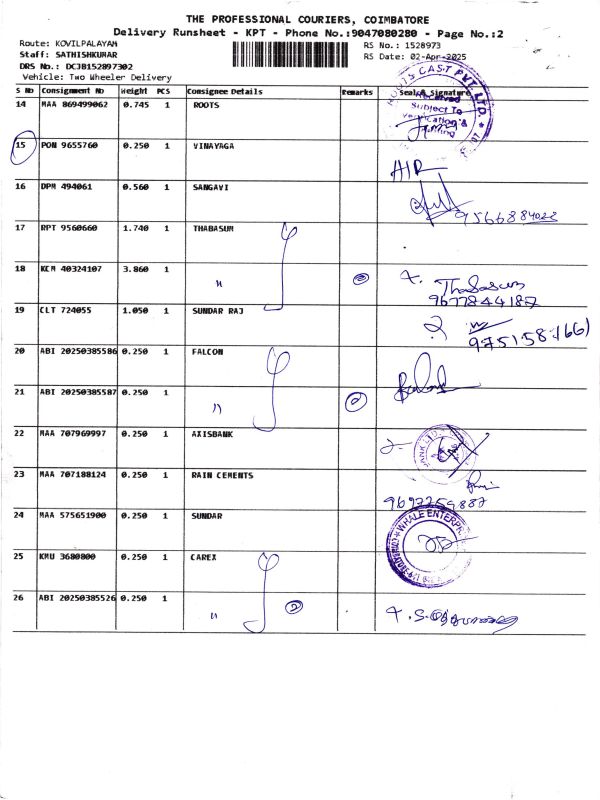 THE PROFESSIONAL COURIERS, COIMBATORE
Delivery Runsheet - KPT - Phone No.:9047080280 - Page No.:2
Route: KOVILPALAYAM
Staff: SATHISHKUMAR
DRS No.: DCJB152897302
Vehicle: Two Wheeler Delivery
RS No.: 1528973
RS Date: 02-Apr-2025
S No Consignment No Weight PCS Consignee Details Remarks Seal & Signature
14 MAA 869499062 0.745 1 ROOTS
ROOTS CAST PVT. LTD.
Received
Subject To
Verification &
15 PON 9655760 0.250 1 VINAYAGA
AIR
16 DPM 494061 0.560 1 SANGAVI
9566884022
17 RPT 9560660 1.740 1 THABASUM
18 KCM 40324107 3.860 1 " 2
Thabasum
9677844187
19 CLT 724055 1.050 1 SUNDAR RAJ
20 ABI 20250385586 0.250 1 FALCON
21 ABI 20250385587 0.250 1 " 2
22 MAA 707969997 0.250 1 AXISBANK
BANK LTD
23 MAA 707188124 0.250 1 RAIN CEMENTS
9697259887
24 MAA 575651900 0.250 1 SUNDAR
WHALE ENTERPRI
25 KMU 3680800 0.250 1 CAREX
26 ABI 20250385526 0.250 1 " 2